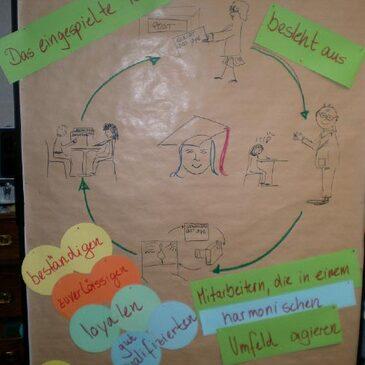 Das eingespielte
besteht aus
POST
beständigen
zuverlässigen
loyalen
gut
Mitarbeitern, die in einem
harmonischen
Umfeld agieren